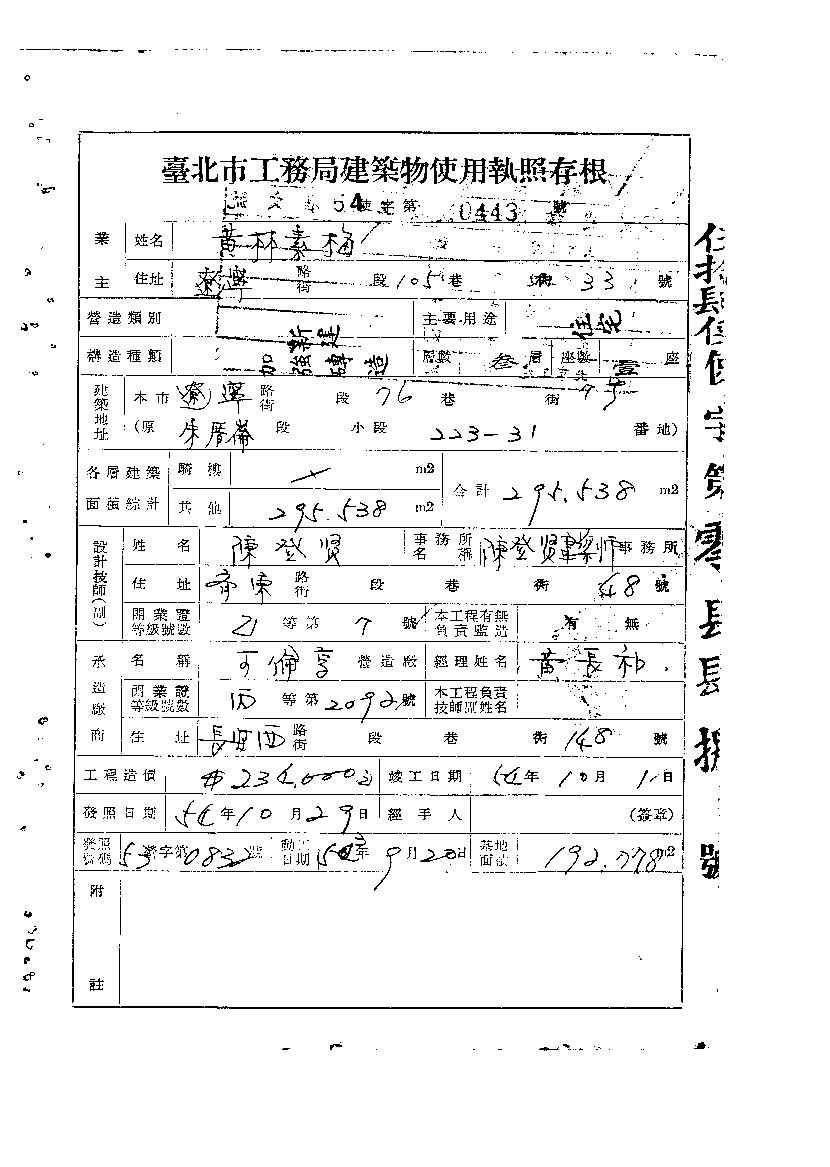 臺北市工務局建築物使用執照存根
54 使字第 0443 號
業主 姓名 黃林素梅
住址 遼寧 路街 段 105 巷 33 號
營造類別 新建 主要用途 住宅
構造種類 加強磚造 層數 叁層 座數 壹座
建築地址 本市 遼寧 路街 段 76 巷 街 7号
(原 朱厝崙 段 小段 223-31 番地)
各層建築面積綜計 騎樓 m2 合計 295.538 m2
其他 295.538 m2
設計技師(副) 姓名 陳登賢 事務所名稱 陳登賢建築師事務所
住址 齊東 路街 段 巷 街 48 號
開業證等級號數 乙 等第 7 號 本工程有無負責監造 有 無
承造廠商 名稱 營造廠 經理姓名 黃長
開業證等級號數 丙 等第 2092 號 本工程負責技師副姓名
住址 長安西 路街 段 巷 街 148 號
工程造價 竣工日期 54年10月1日
發照日期 54年10月29日 經手人 (簽章)
發照號碼 53 營字第 0832 號 動工日期 年9月20日 基地面積 192.778 m2
附註
伍拾肆 使 字第零 號